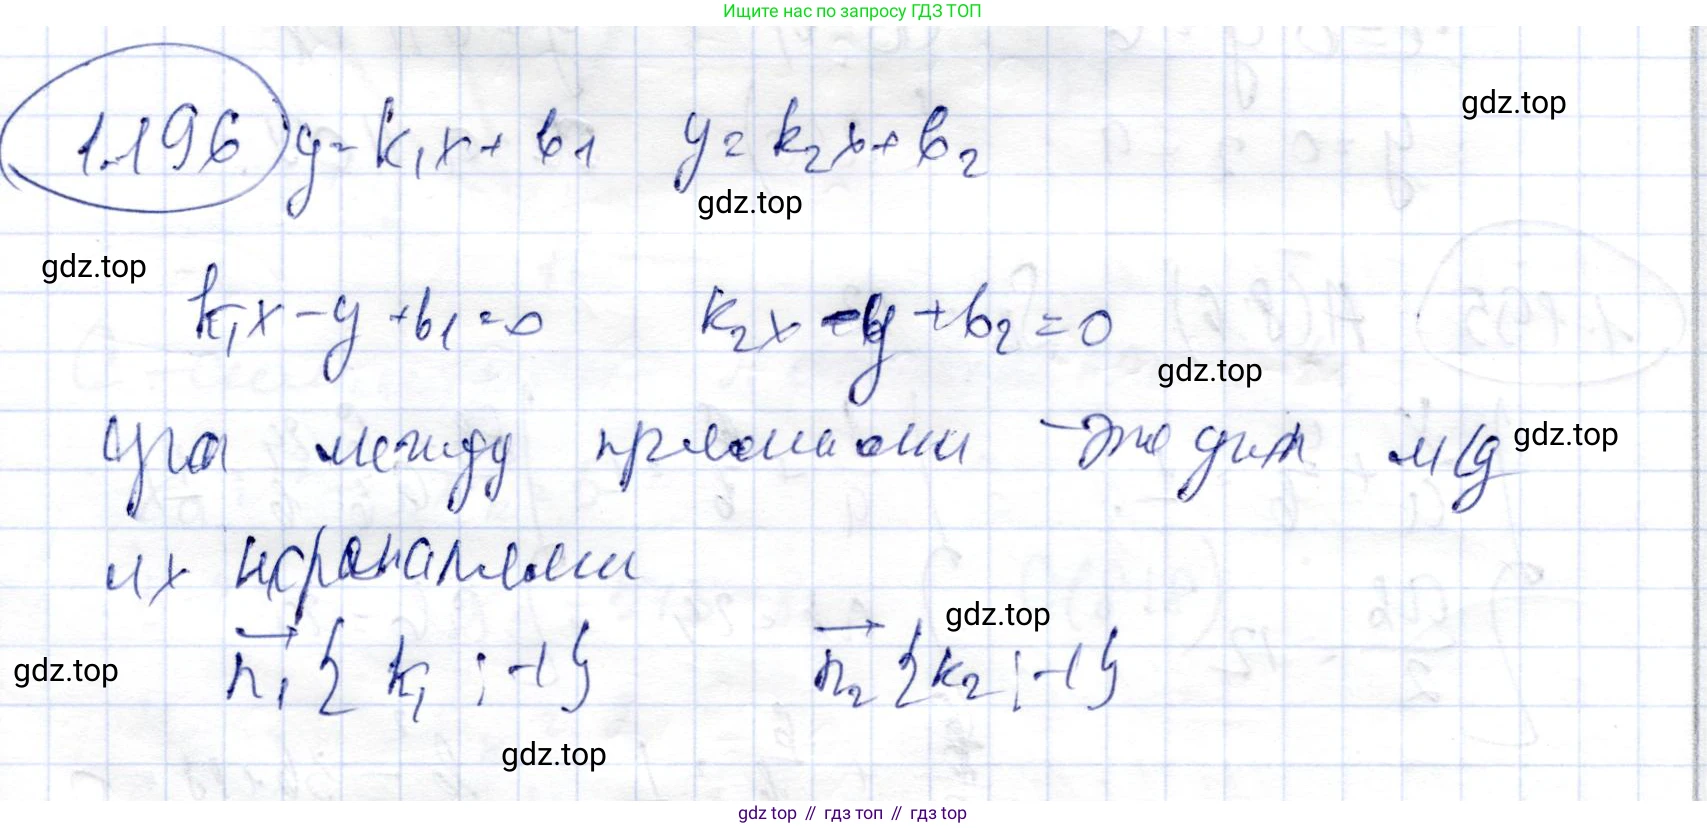 Ищите нас по запросу ГДЗ ТОП
1.196 y = k₁x + b₁ y = k₂x + b₂
gdz.top
gdz.top
gdz.top
k₁x - y + b₁ = 0 k₂x - y + b₂ = 0
gdz.top
угол между прямыми - это угол м/д
gdz.top
их нормалями
gdz.top
n₁ { k₁ ; -1 } n₂ { k₂ ; -1 }
gdz.top
gdz.top
gdz top // гдз топ // гдз top